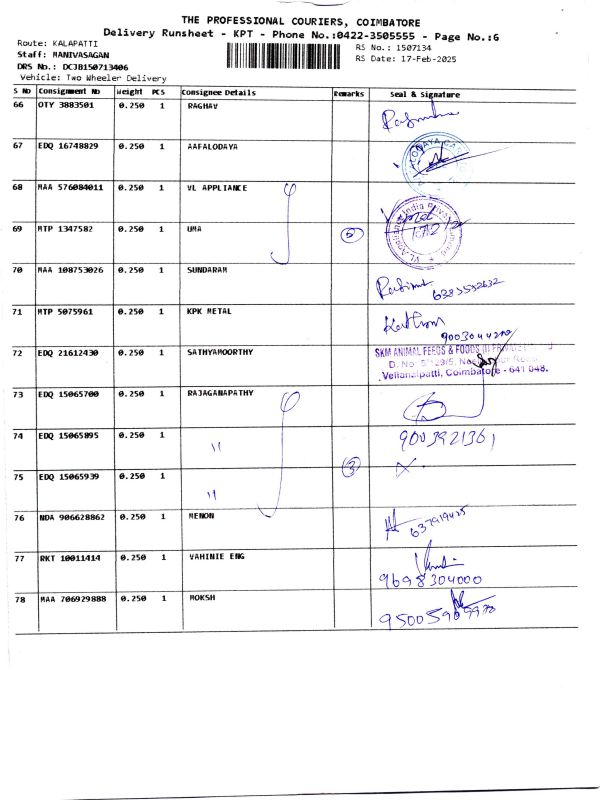 THE PROFESSIONAL COURIERS, COIMBATORE
Delivery Runsheet - KPT - Phone No.:0422-3505555 - Page No.:6
Route: KALAPATTI
RS No.: 1507134
Staff: MANIVASAGAN
RS Date: 17-Feb-2025
DRS No.: DCJB150713406
Vehicle: Two Wheeler Delivery
S No Consignment No Weight PCS Consignee Details Remarks Seal & Signature
66 OTY 3883501 0.250 1 RAGHAV
67 EDQ 16748829 0.250 1 AAFALODAYA
68 MAA 576084011 0.250 1 VL APPLIANCE
69 MTP 1347582 0.250 1 UMA
70 MAA 108753026 0.250 1 SUNDARAM
6383592632
71 MTP 5075961 0.250 1 KPK METAL
9003044270
72 EDQ 21612430 0.250 1 SATHYAMOORTHY
SKM ANIMAL FEEDS & FOODS
Vellanaipatti, Coimbatore - 641 048.
73 EDQ 15065700 0.250 1 RAJAGANAPATHY
74 EDQ 15065895 0.250 1 "
9003921361
75 EDQ 15065939 0.250 1 " 3 X
76 NDA 906628862 0.250 1 MENON
77 RKT 10011414 0.250 1 VAHINIE ENG
9698304000
78 MAA 706929888 0.250 1 MOKSH